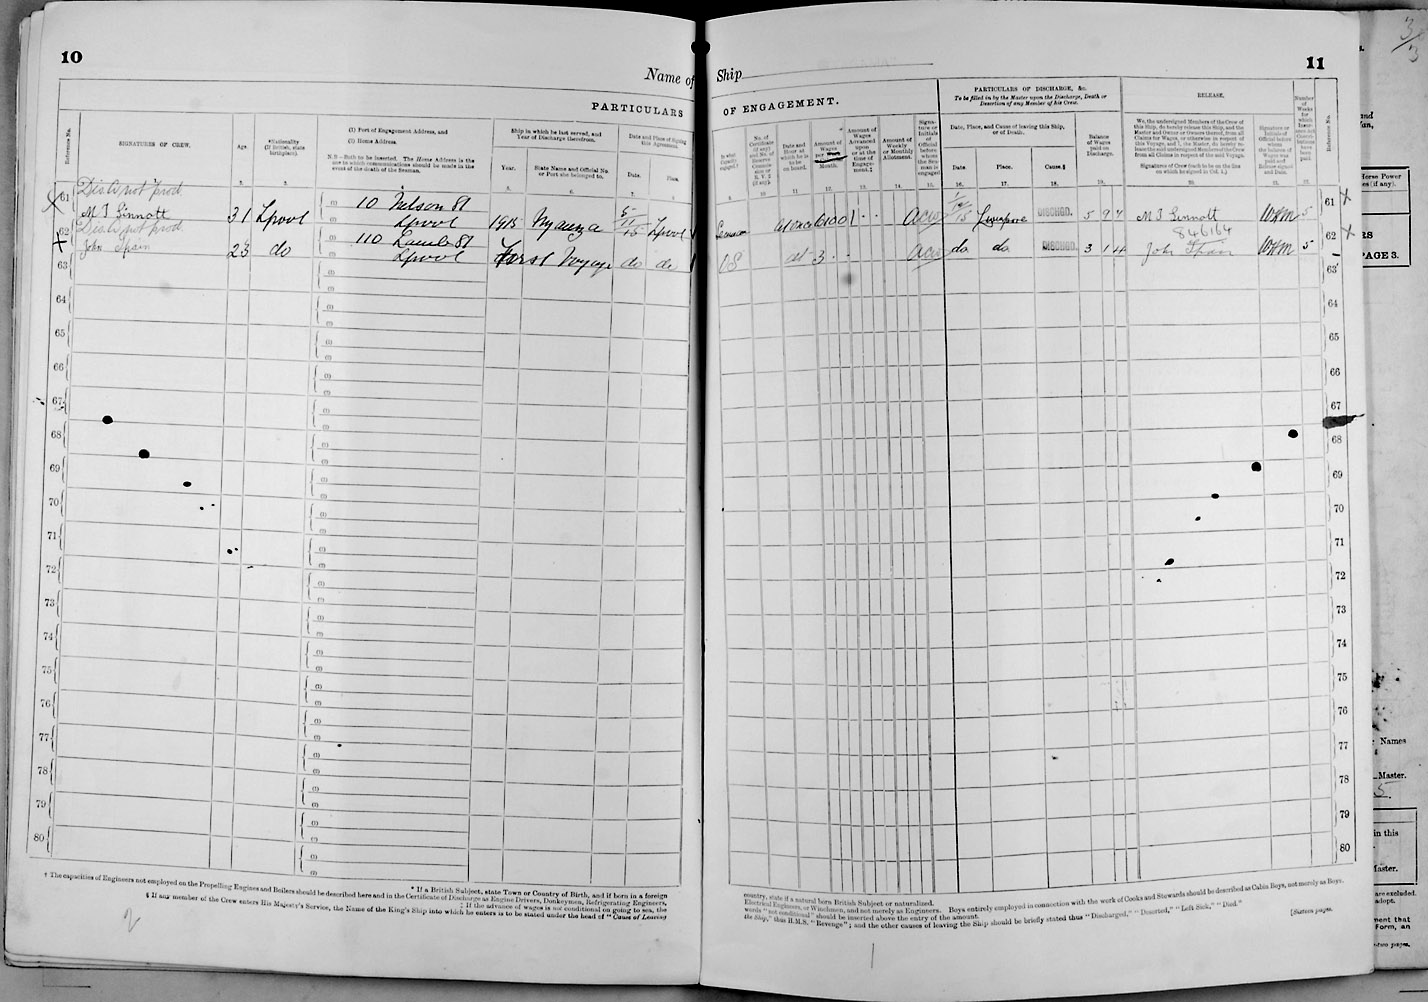 10
Name of Ship
11
PARTICULARS OF ENGAGEMENT.
PARTICULARS OF DISCHARGE, &c.
To be filled in by the Master upon the Discharge, Death or Desertion of any Member of his Crew.
RELEASE.
Reference No.
SIGNATURES OF CREW.
Age.
*Nationality (If British, state birthplace).
(1) Port of Engagement Address, and
(2) Home Address.
N.B.—Both to be inserted. The Home Address is the one to which communications should be made in the event of the death of the Seaman.
Ship in which he last served, and Year of Discharge therefrom.
Year.
State Name and Official No. or Port she belonged to.
Date and Place of Signing this Agreement.
Date.
Place.
In what Capacity engaged.†
Date and Hour at which he is to be on board.
Amount of Wages per Month.
Amount of Wages Advanced upon or at the time of Engagement.‡
Amount of Weekly or Monthly Allotment.
Signature or Initials of Official before whom the Seaman is engaged
Date, Place, and Cause of leaving this Ship, or of Death.
Date.
Place.
Cause.§
Balance of Wages paid on Discharge.
We, the undersigned Members of the Crew of this Ship, do hereby release this Ship, and the Master and Owner or Owners thereof, from all Claims for Wages, or otherwise in respect of this Voyage, and I, the Master, do hereby release the said undersigned Members of the Crew from all Claims in respect of the said Voyage.
Signatures of Crew (each to be on the line on which he signed in Col. 1.)
Reference No.
Dis. A not prod
61 M J Sinnott 31 Lpool (1) 10 Nelson St
(2) Lpool 1915 Nyanza 5/11/15 Lpool Seaman at once 6 10 0 1 DISCHGD. 5 9 7 M J Sinnott 5 61
Dis. A not prod
846164
62 John Spain 23 do (1) 110 Lamb St
(2) Lpool First Voyage do do OS at 3 do do DISCHGD. 3 1 4 John Spain 5 62
63 63
64 64
65 65
66 66
67 67
68 68
69 69
70 70
71 71
72 72
73 73
74 74
75 75
76 76
77 77
78 78
79 79
80 80
* If a British Subject, state Town or Country of Birth, and if born in a foreign country, state if a natural born British Subject or naturalized.
† The capacities of Engineers not employed on the Propelling Engines and Boilers should be described here and in the Certificate of Discharge as Engine Drivers, Donkeymen, Refrigerating Engineers, Electrical Engineers, or Winchmen, and not merely as Engineers. Boys entirely employed in connection with the work of Cooks and Stewards should be described as Cabin Boys, not merely as Boys.
‡ If the advance of wages is not conditional on going to sea, the words "not conditional" should be inserted above the entry of the amount.
§ If any member of the Crew enters His Majesty's Service, the Name of the King's Ship into which he enters is to be stated under the head of "Cause of Leaving the Ship," thus H.M.S. "Revenge"; and the other causes of leaving the Ship should be briefly stated thus "Discharged," "Deserted," "Left Sick," "Died."
[Sixteen pages.
3/3
Horse Power
PAGE 3.
Names
Master.
in this
Master.
are excluded.
adopt.
Form, an